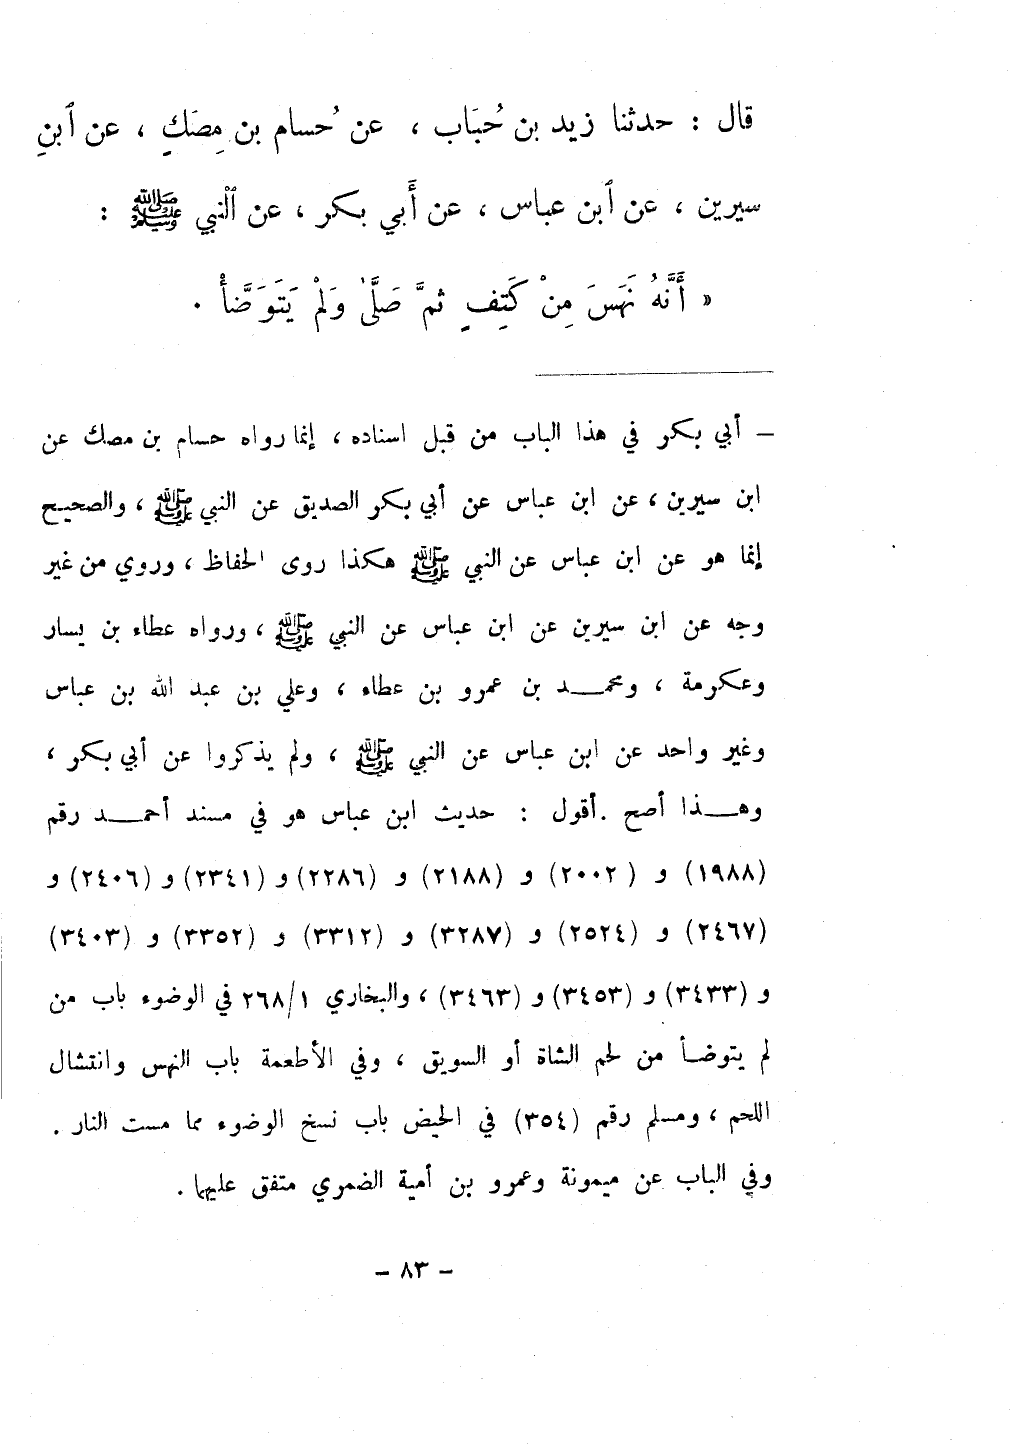 قال : حدثنا زيد بن حُبَاب ، عن حُسام بن مِصَكٍ ، عن ٱبنِ
سيرين ، عن ٱبن عباس ، عن أَبي بكر ، عن ٱلنبي ﷺ :
« أَنَّهُ نَهَسَ مِنْ كَتِفٍ ثمَّ صَلَّىٰ وَلَمْ يَتَوَضَّأْ .
– أبي بكر في هذا الباب من قبل اسناده ، إنما رواه حسام بن مصك عن
ابن سيرين ، عن ابن عباس عن أبي بكر الصديق عن النبي ﷺ ، والصحيح
إنما هو عن ابن عباس عن النبي ﷺ هكذا روى الحفاظ ، وروي من غير
وجه عن ابن سيرين عن ابن عباس عن النبي ﷺ ، ورواه عطاء بن يسار
وعكرمة ، ومحمــد بن عمرو بن عطاء ، وعلي بن عبد الله بن عباس
وغير واحد عن ابن عباس عن النبي ﷺ ، ولم يذكروا عن أبي بكر ،
وهــذا أصح . أقول : حديث ابن عباس هو في مسند أحمــد رقم
(١٩٨٨) و (٢٠٠٢) و (٢١٨٨) و (٢٢٨٦) و (٢٣٤١) و (٢٤٠٦) و
(٢٤٦٧) و (٢٥٢٤) و (٣٢٨٧) و (٣٣١٢) و (٣٣٥٢) و (٣٤٠٣)
و (٣٤٣٣) و (٣٤٥٣) و (٣٤٦٣) ، والبخاري ٢٦٨/١ في الوضوء باب من
لم يتوضأ من لحم الشاة أو السويق ، وفي الأطعمة باب النهس وانتشال
اللحم ، ومسلم رقم (٣٥٤) في الحيض باب نسخ الوضوء مما مست النار .
وفي الباب عن ميمونة وعمرو بن أمية الضمري متفق عليهما .
– ٨٣ –